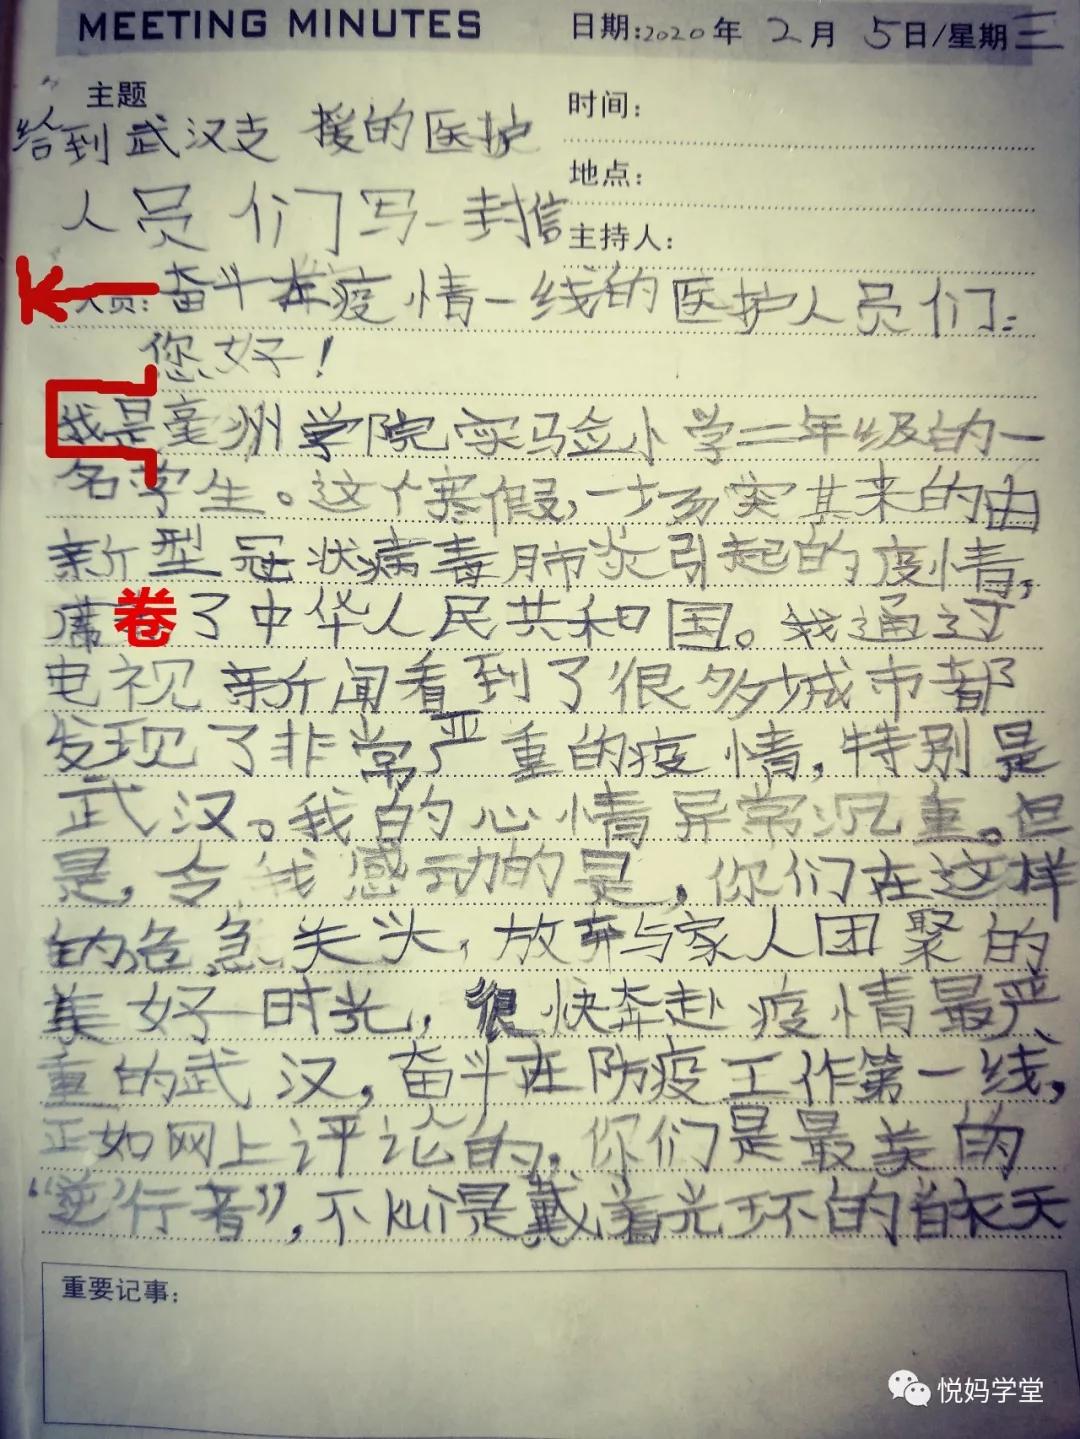 MEETING MINUTES
日期:2020年 2月 5日/星期三
主题
时间:
给到武汉支 援的医护
地点:
人员 们写一封信
主持人:
人员: 奋斗在疫情一线的医护人员们:
您好!
我是亳州学院实验小学二年级的一
名学生。这个寒假,一场突其来的由
新型冠状病毒肺炎引起的疫情,
席卷了中华人民共和国。我通过
电视新闻看到了很多城市都
发现了非常严重的疫情,特别是
武汉。我的心情异常沉重。但
是,令我感动的是,你们在这样
的危急关头,放弃与家人团聚的
美好时光,很快奔赴疫情最严
重的武汉,奋斗在防疫工作第一线,
正如网上评论的,你们是最美的
“逆行者”,不kuì是戴着光环的白衣天
重要记事:
悦妈学堂